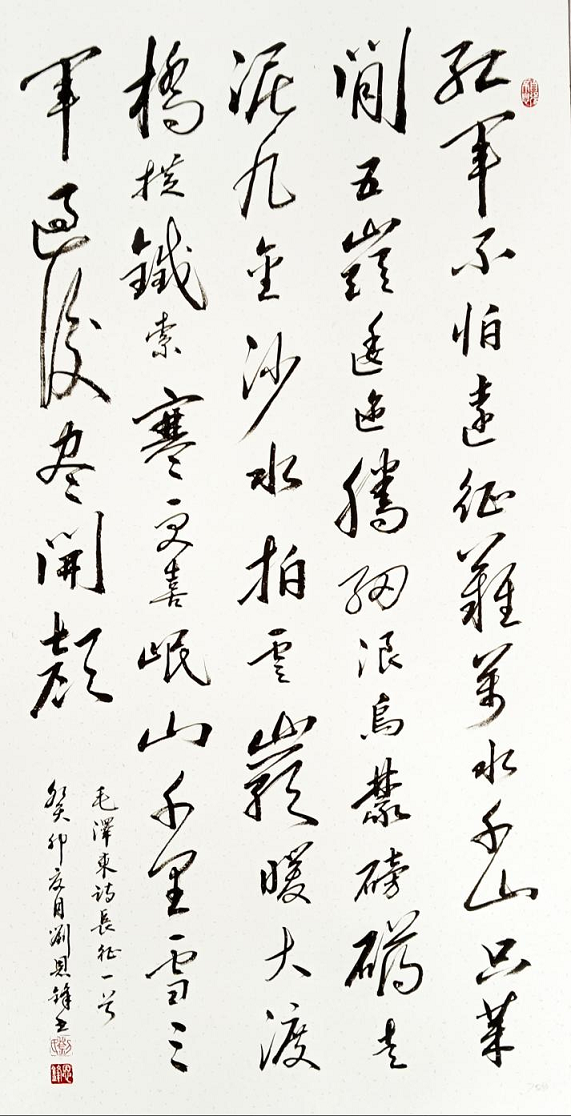 紅軍不怕遠征難萬水千山只等
閒五嶺逶迤騰細浪烏蒙磅礴走
泥丸金沙水拍雲暖大渡
橋横鐵索寒更喜岷山千里雪三
軍過後尽開顏
毛澤東詩長征一首
癸卯夏月劉恩鋒書